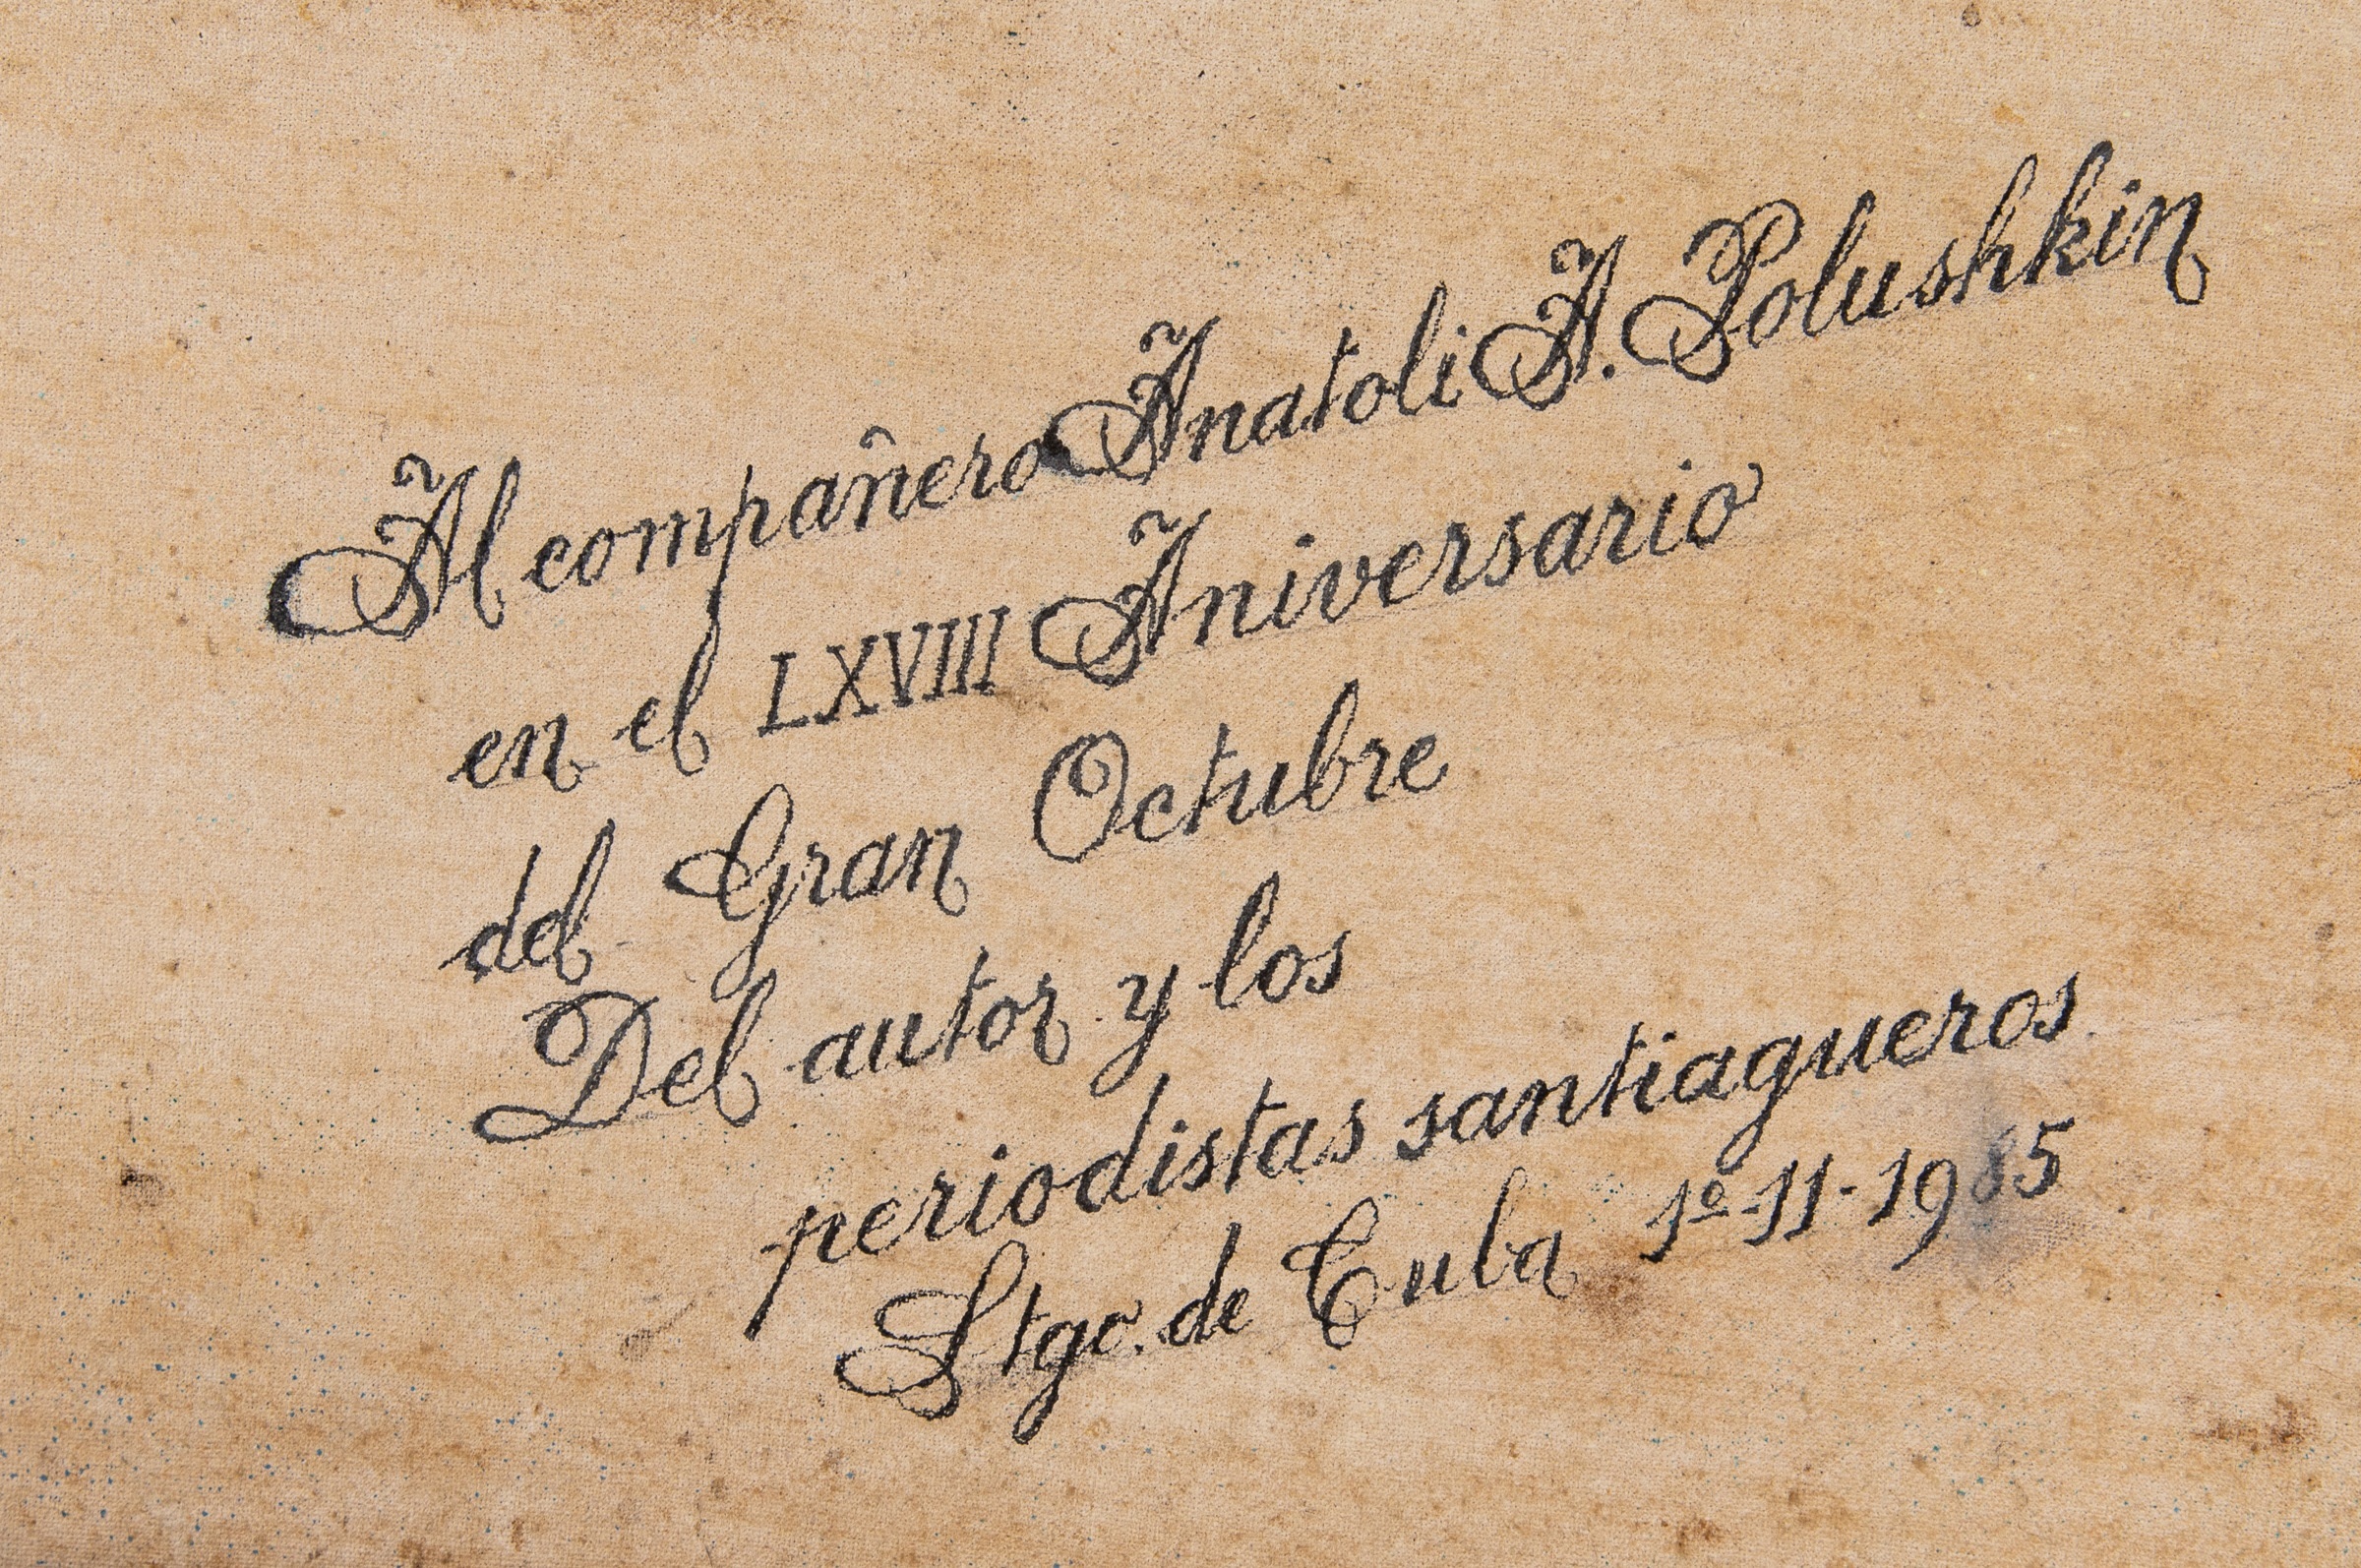 Al compañero Anatoli A. Polushkin
en el LXVIII Aniversario
del Gran Octubre
Del autor y los
periodistas santiagueros
Stgo. de Cuba 1º-11-1985